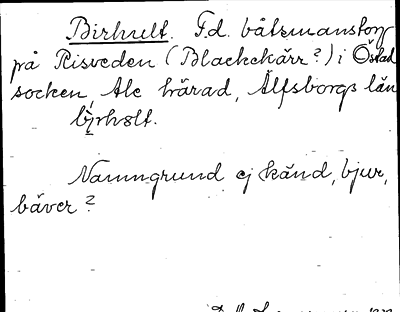 Birhult. F.d. båtsmanstorp
på Risveden (Blackekärr?) i Östad
socken, Ale härad, Älfsborgs län
Namngrund ej känd, bjur,
bäver?